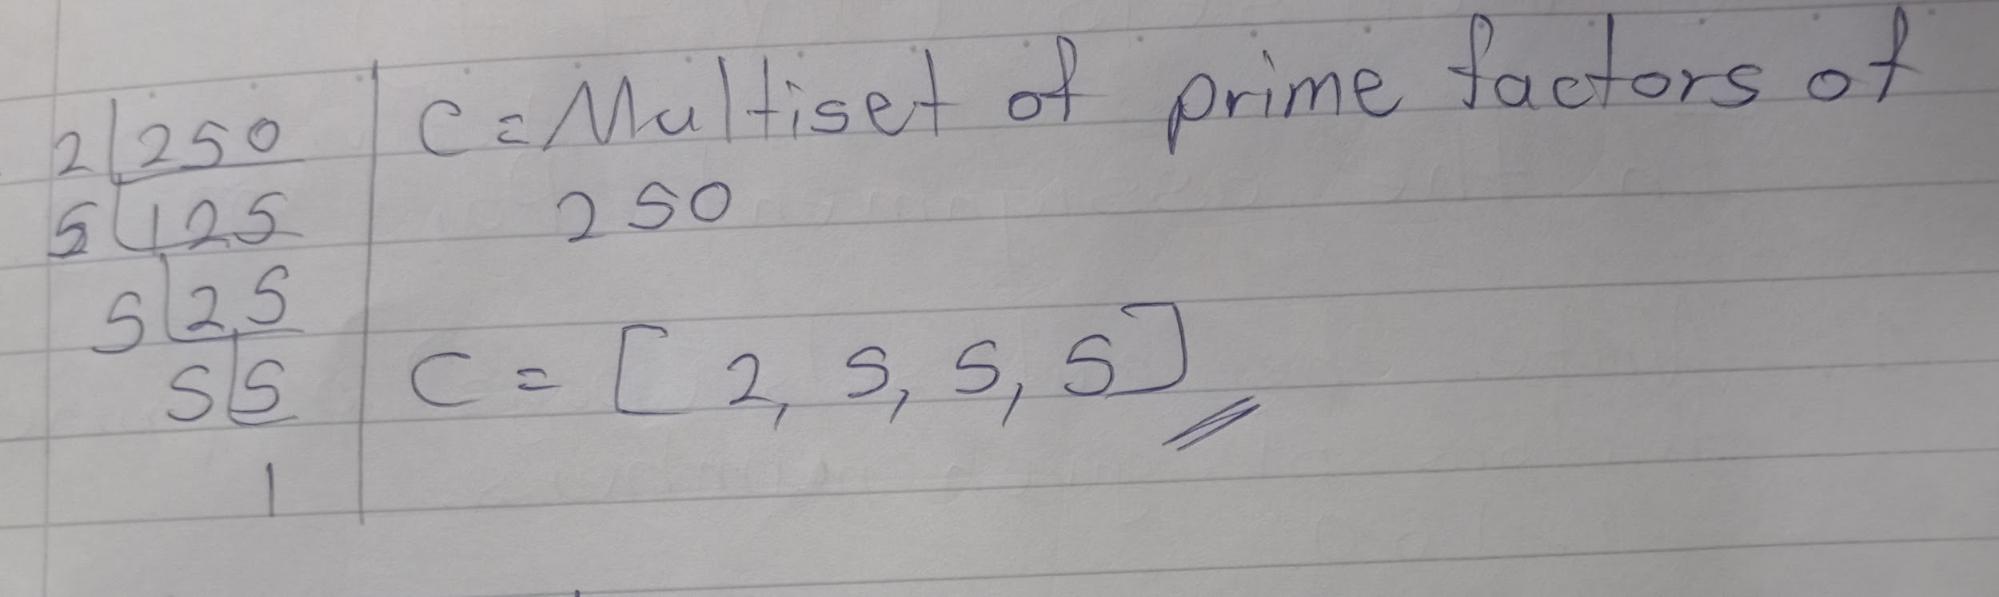 2 | 250
5 | 125
5 | 25
5 | 5
1
C = Multiset of prime factors of
250
C = [ 2, 5, 5, 5 ]